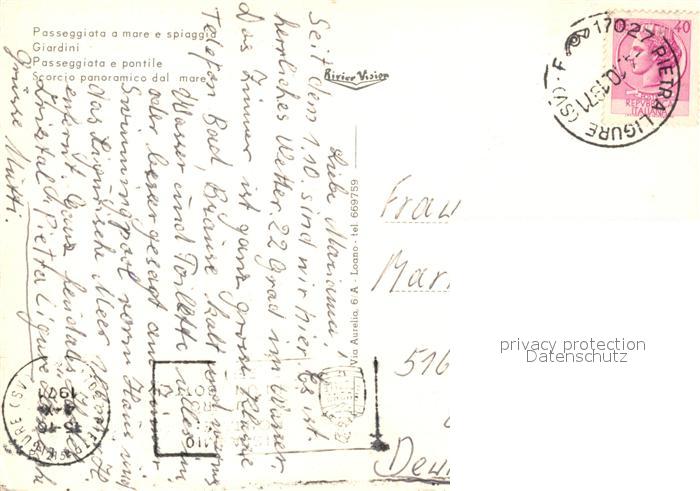 Passeggiata a mare e spiaggia
Giardini
Passeggiata e pontile
Scorcio panoramico dal mare
Rivier Vision
Via Aurelia, 6/A - Loano - tel. 669759
Liebe Marianna,
Seit dem 1.10. sind wir hier. Es ist
herrliches Wetter. 22 Grad im Wasser.
Das Zimmer ist ganz große Klasse
Telefon Bad, Brause kalt und warmes
Wasser und Toilette alles im
oder besser gesagt am Zimmer
Swimmingpool vorm Haus und
das Ligurische Meer
entfernt. Ganz
Pietra Ligure
Grüsse Mutti.
Frau
Mar
516
Deu
17027 PIETRA LIGURE (SV)
10.1971
40
REPUBBLICA
ITALIANA
17027 PIETRA LIGURE (SV)
1971
privacy protection
Datenschutz